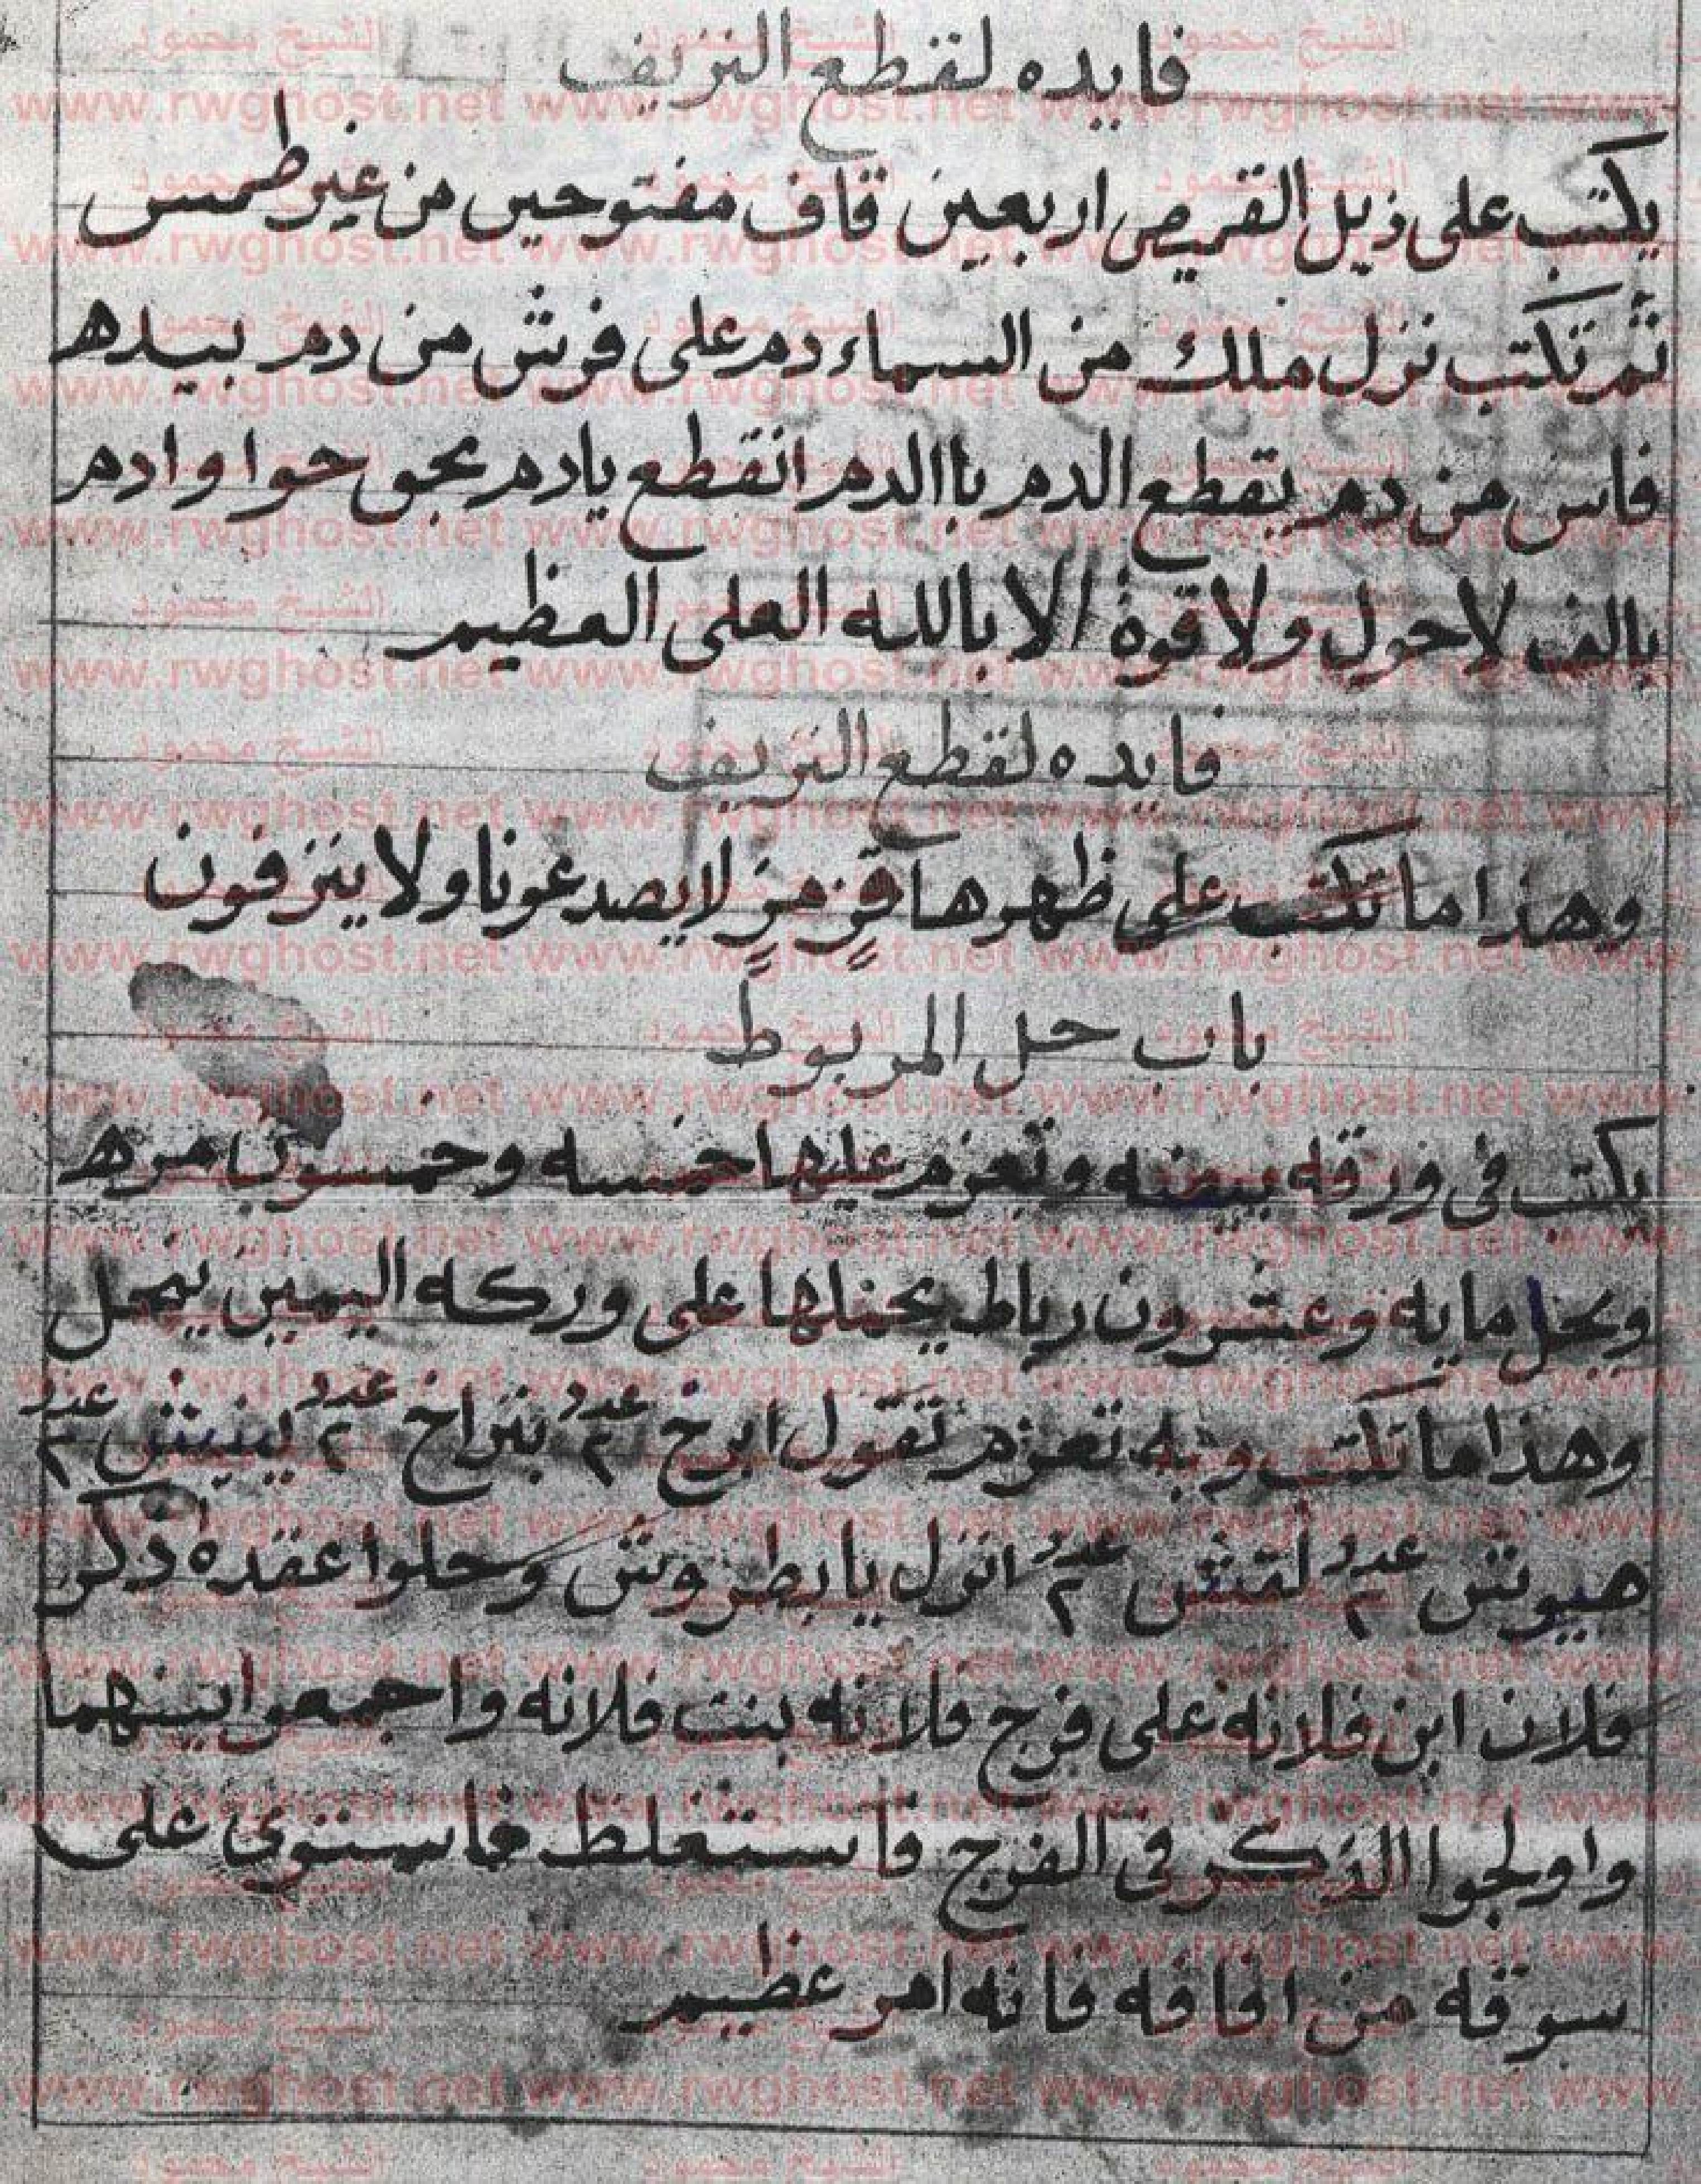 فايده لقطع النزيف
يكتب على ذيل القميص اربعين قاف مفتوحين من غير طمس
ثم تكتب نزل ملك من السماء دم على فرش من دم بيده
فاس من دم يقطع الدم باالدم انقطع يادم بحق حوا وادم
بالف لاحول ولا قوة الا بالله العلى العظيم
فايده لقطع النزيف
وهذا ما تكتب على ظهرها لا يصدعونا ولا ينزفون
باب حل المربوط
يكتب فى ورقه بيضه وتعزم عليها خمسه وخمسون مره
ويحل مايه وعشرون رباط يحملها على وركه اليمين ينحل
وهذا ما تكتب وبه تعزم تقول ابرخ عدد ٢ بنراخ عدد ٢ عدد ٢
هيوش عدد ٢ لقش عدد ٢ انزل يا بطروش وحلوا عقده ذكر
فلان ابن فلانه على فرج فلانه بنت فلانه واجمعوا بينهما
واولجوا الذكر فى الفرج فاستغلظ فاستوى على
سوقه من افاقه فانه امر عظيم
الشيخ محمود
www.rwghost.net